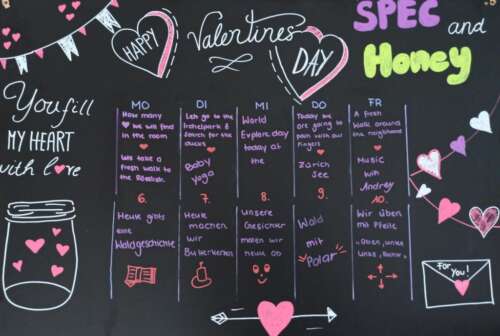 HAPPY
Valentines
DAY
SPEC and
Honey
You fill
MY HEART
with love
MO
How many
❤ we will find
in the room
We take a
fresh walk to
the
6.
Heute gibts
eine
Waldgeschichte
DI
Let's go to the
Irchelpark &
Search for the
ducks
Baby
Yoga
7.
Heute
machen
wir
Butterkerzen
MI
World
Explore day
today at
the
8.
Unsere
Gesichter
malen wir
neue ab
DO
Today we
are going
to paint with our
Fingers
Zürich
See
9.
Wald
mit
Polar
FR
A fresh
Walk around
the neighborhood
Music
with
Andrey
10.
Wir üben
mit Pfeile
"Oben, unten
links, Rechts"
For you!